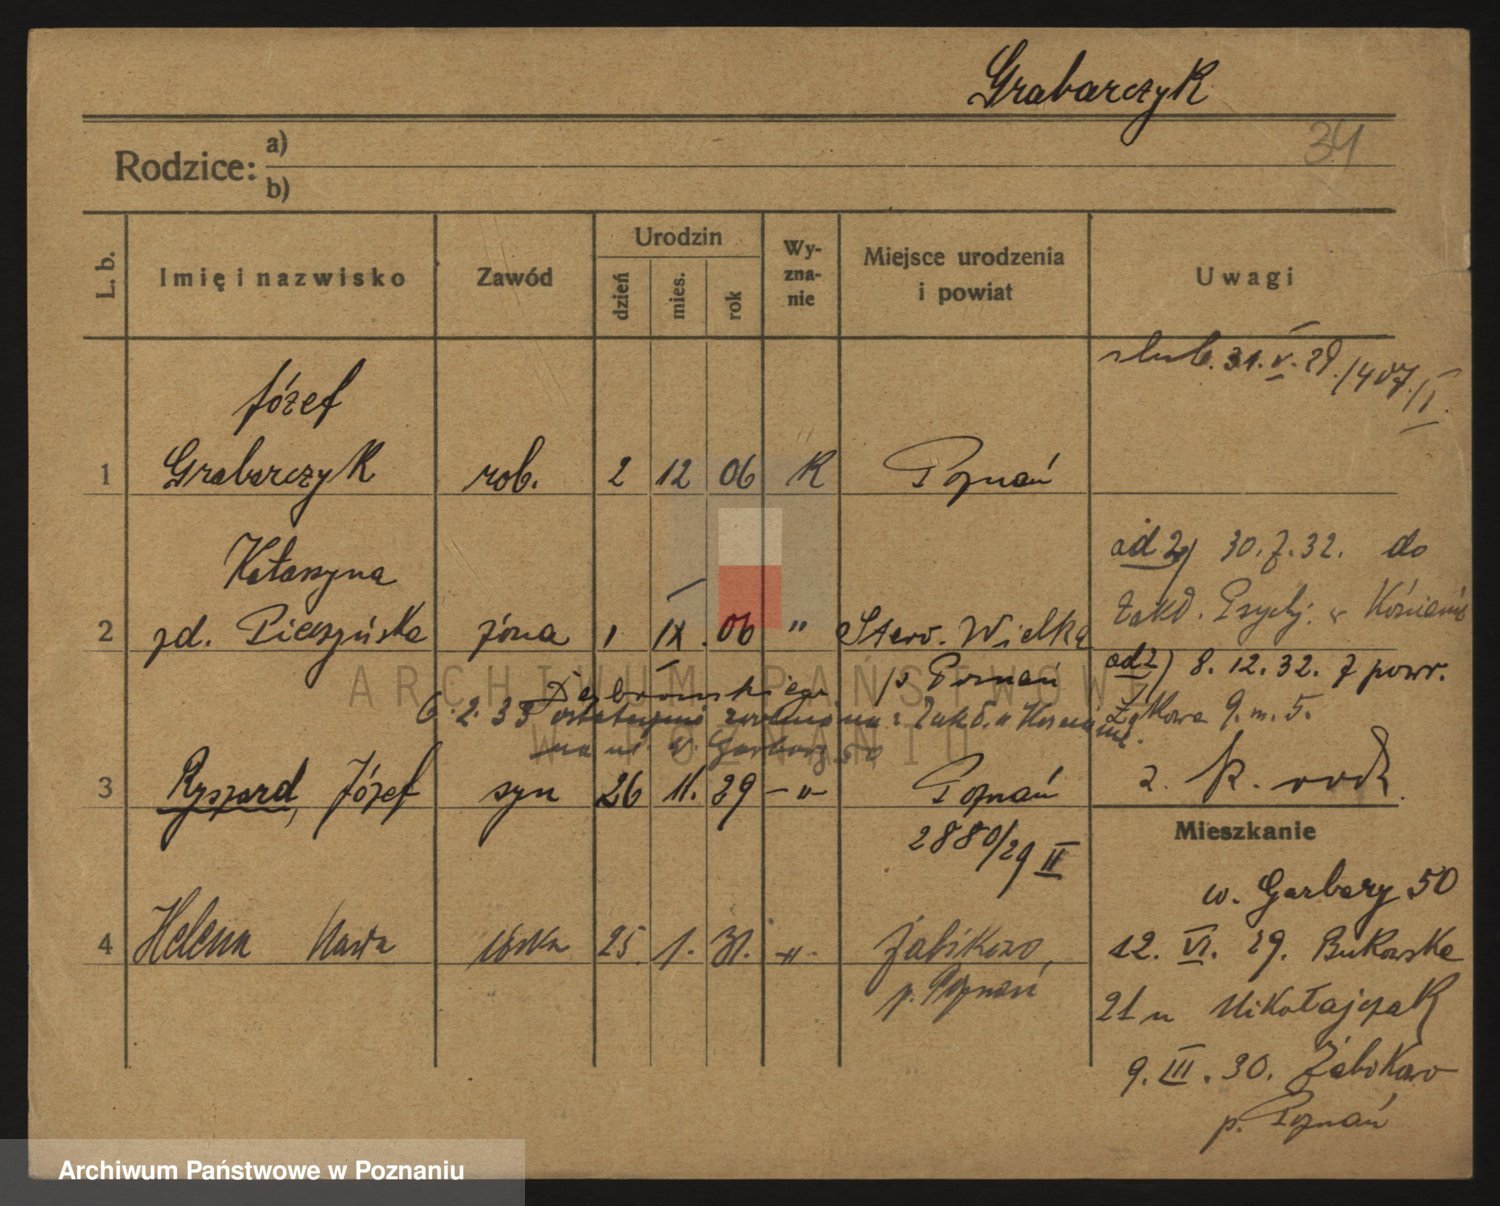 Grabarczyk
34
Rodzice: a)
b)
L. b. Imię i nazwisko Zawód Urodzin dzień mies. rok Wyznanie Miejsce urodzenia i powiat Uwagi
ślub. 31.V.29./407/II
Józef
1 Grabarczyk rob. 2 12 06 K Poznań
Katarzyna
od 2) 30.7.32. do
Zakł. Psych. w Kościanie
2 zd. Pieszyńska żona 1 IX. 06 " Star. Wielka
p Poznań
od 2) 8.12.32. z powr.
Żukowa 9. m. 5.
Dąbrowskiego
6.2.33 zwolniona z Zakł. w Kościanie.
na ul. W. Garbary 50
3 Ryszard, Józef syn 26 11. 29 -"- Poznań
2880/29 II
z. K. rodz.
Mieszkanie
w. Garbary 50
4 Helena córka 25. 1. 31. -"- Żabikowo,
p. Poznań
12. VI. 29. Bukowska
21 u Mikołajczak
9. III. 30. Żabikowo
p. Poznań
ARCHIWUM PAŃSTWOWE
W POZNANIU
Archiwum Państwowe w Poznaniu